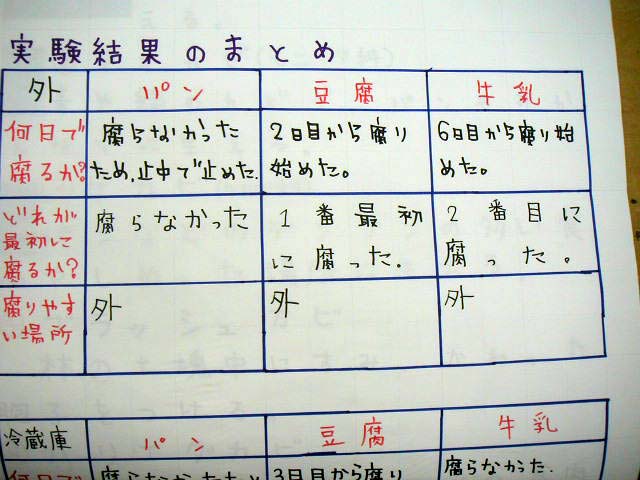 実験結果のまとめ
外 パン 豆腐 牛乳
何日で
腐るか?
腐らなかった
ため、止中で止めた.
2日目から腐り
始めた。
6日目から腐り始
めた。
どれが
最初に
腐るか?
腐らなかった
1番最初
に腐った.
2番目に
腐った。
腐りやす
い場所
外
外
外
冷蔵庫 パン 豆腐 牛乳
何日で
3日目から腐り
腐らなかった.